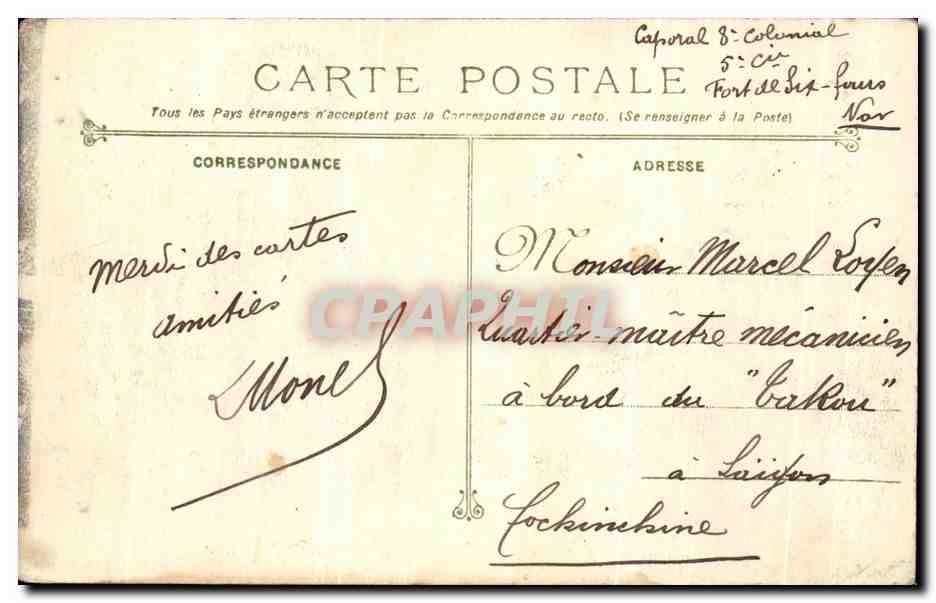 Caporal 8e Colonial
5e Cie
Fort de Six-fours
Var
CARTE POSTALE
Tous les Pays étrangers n'acceptent pas la Correspondance au recto. (Se renseigner à la Poste)
CORRESPONDANCE
ADRESSE
Merci des cartes
amitiés
LMonel
Monsieur Marcel Loyen
Quartier-maître mécanicien
à bord du "Takou"
à Saïgon
Cochinchine
CPAPHIL